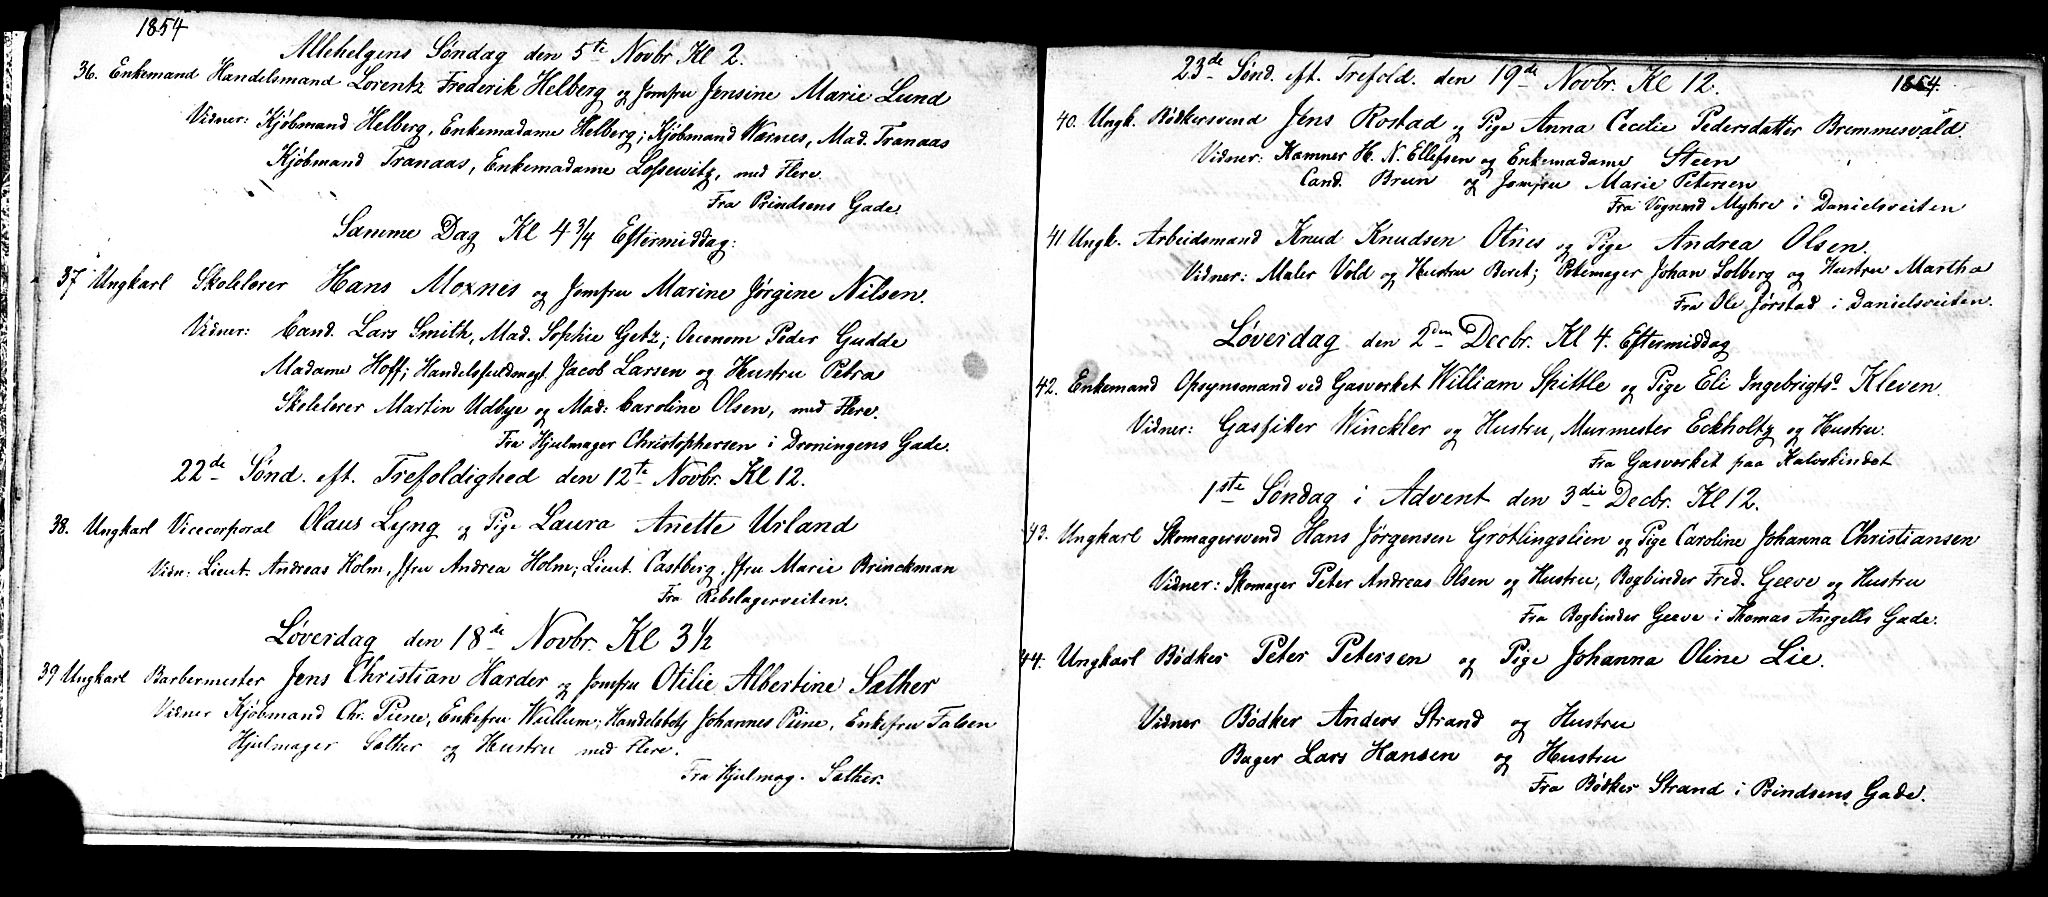 1854
Allehelgens Søndag den 5te Novbr Kl 2.
36. Enkemand Handelsmand Lorentz Frederik Helberg og Jomfru Jensine Marie Lund
Vidner: Kjöbmand Helberg, Enkemadame Helberg; Kjöbmand Wærnes, Mad. Tranaas
Kjöbmand Tranaas, Enkemadame Lossewitz, med Flere.
Fra Prindsens Gade.
Samme Dag Kl 4 3/4 Eftermiddag:
37 Ungkarl Skolelærer Hans Moxnes og Jomfru Marine Jørgine Nilsen.
Vidner: Cand. Lars Smith, Mad. Sophie Getz; Oeconom Peder Gudde
Madame Hoff; Handelsfuldmegt Jacob Larsen og Hustru Petra
Skolelærer Martin Udbye og Mad: Caroline Olsen, med Flere.
Fra Hjulmager Christophersen i Dronningens Gade.
22de Sønd. eft. Trefoldighed den 12te Novbr. Kl 12.
38. Ungkarl Vicecorporal Olaus Lyng og Pige Laura Anette Urland
Vidn: Lieut. Andreas Holm, Jfru Andrea Holm; Lieut. Castberg, Jfru Marie Brinckman
Fra Rebslagerveiten.
Løverdag den 18de Novbr. Kl 3 1/2
39 Ungkarl Barbermester Jens Christian Harder og Jomfru Otilie Albertine Sæther
Vidner Kjöbmand Chr. Piene, Enkefru Wullum; Handelsbtj Johannes Piene, Enkefru Falsen
Hjulmager Sæther og Hustru med Flere.
Fra Hjulmag. Sæther.
23de Sønd. eft. Trefold. den 19de Novbr. Kl 12.
1854.
40. Ungk. Bödkersvend Jens Rostad og Pige Anna Cecilie Pedersdatter Bremmesvald.
Vidner: Kæmner H. N. Ellefsen og Enkemadame Steen
Cand. Brun og Jomfru Marie Petersen
Fra Vognmd Myhre i Danielsveiten
41 Ungk. Arbeidsmand Knud Knudsen Otnes og Pige Andrea Olsen.
Vidner: Maler Vold og Hustru Beret; Potemager Johan Solberg og Hustru Martha
Fra Ole Jørstad i Danielsveiten.
Løverdag den 2den Decbr. Kl 4. Eftermiddag
42. Enkemand Opsynsmand ved Gasværket William Spittle og Pige Eli Ingebrigtsd. Kleven.
Vidner: Gasfitter Winckler og Hustru, Murmester Eckholtz og Hustru.
Fra Gasværket paa Kalvskindet
1ste Søndag i Advent den 3die Decbr. Kl 12.
43. Ungkarl Skomagersvend Hans Jørgensen Grötlingslien og Pige Caroline Johanna Christiansen
Vidner: Skomager Peter Andreas Olsen og Hustru, Bogbinder Fred. Geeve og Hustru
Fra Bogbinder Geeve i Thomas Angells Gade.
44. Ungkarl Bödker Peter Petersen og Pige Johanna Oline Lie.
Vidner Bödker Anders Strand og Hustru
Bager Lars Hansen og Hustru
Fra Bödker Strand i Prindsens Gade.